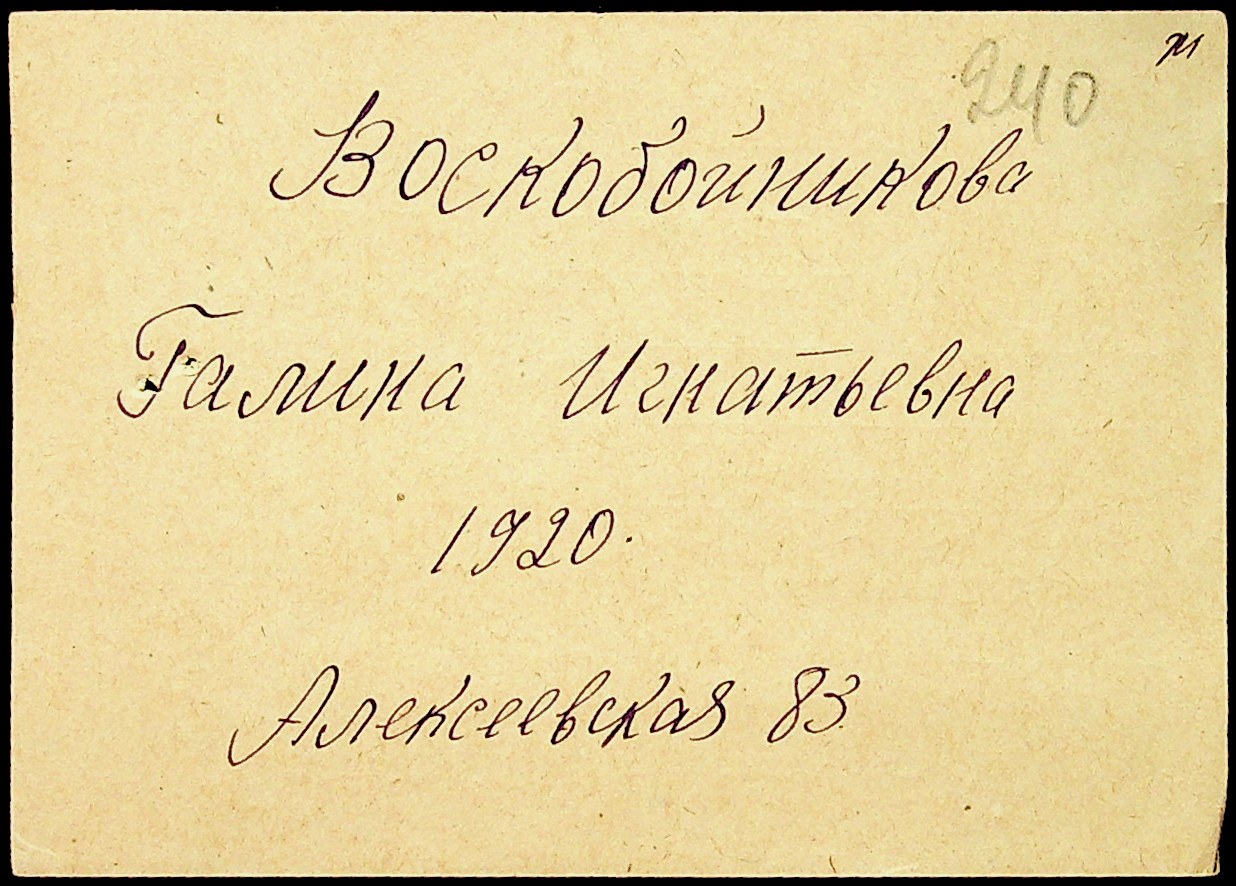 240
Воскобойникова
Галина Игнатьевна
1920.
Алексеевская 83.